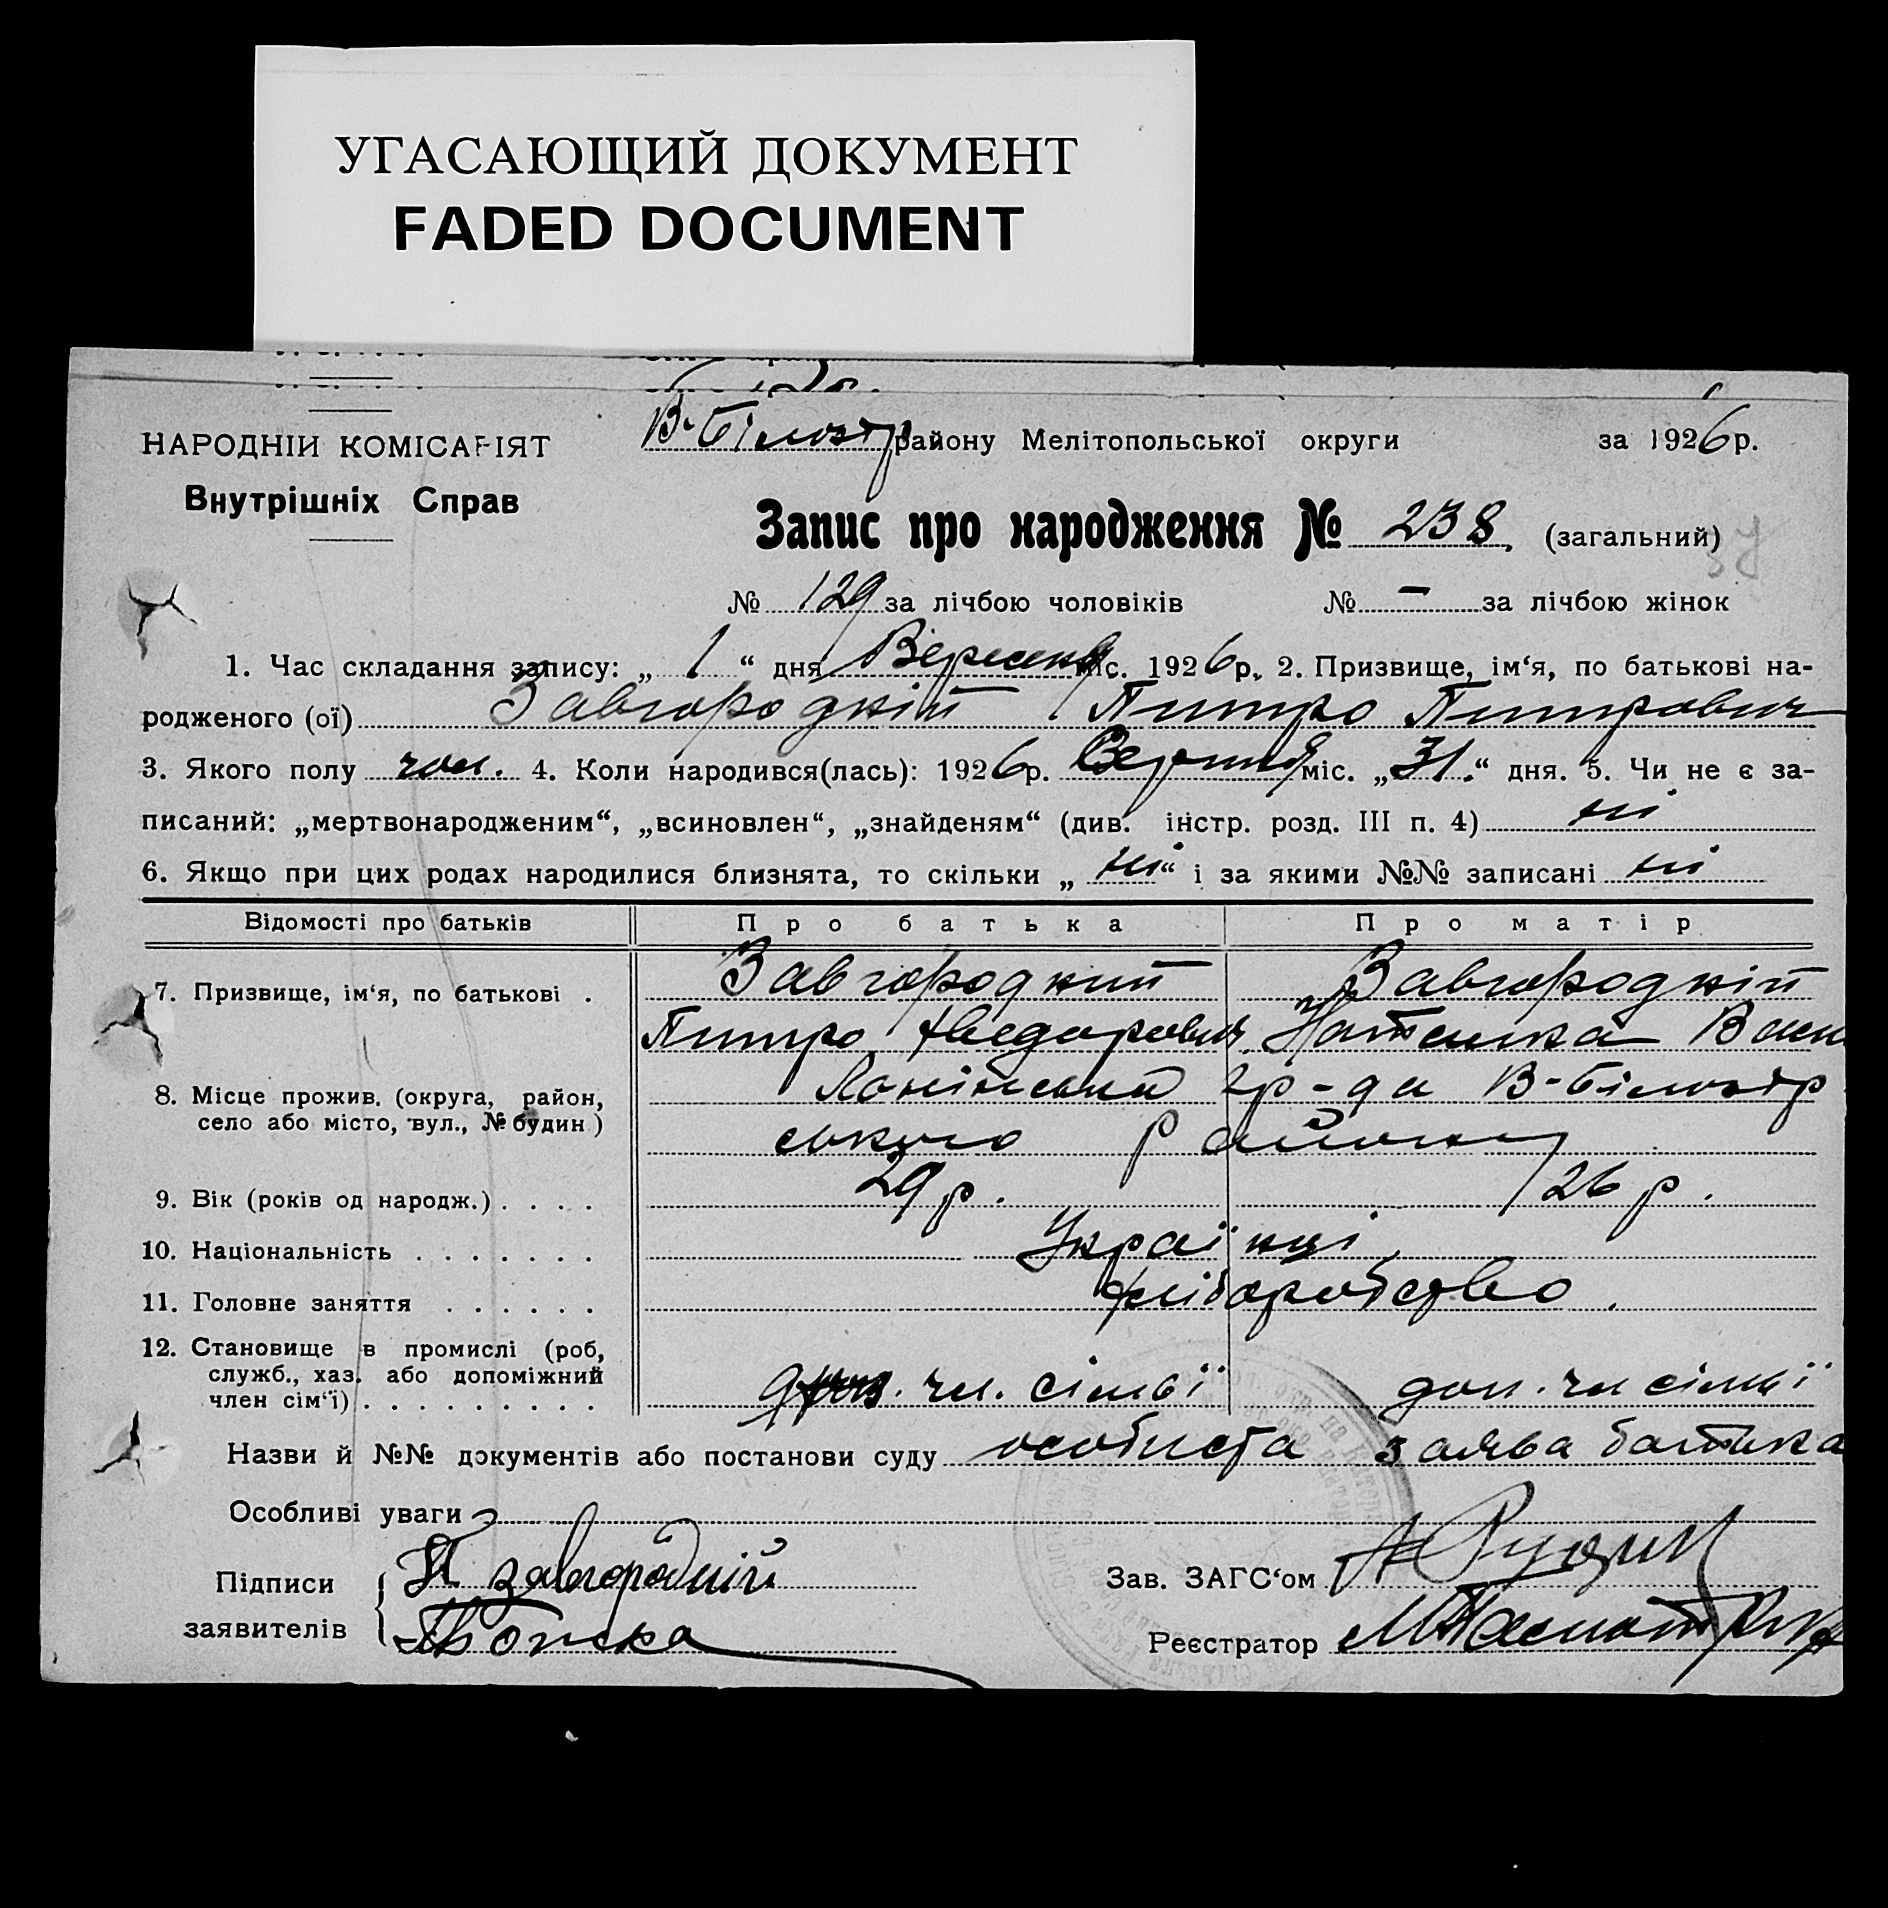 УГАСАЮЩИЙ ДОКУМЕНТ
FADED DOCUMENT
НАРОДНІЙ КОМІСАРІЯТ
Внутрішніх Справ
В-Білозер району Мелітопольської округи за 1926 р.
Запис про народження № 238, (загальний)
№ 129 за лічбою чоловіків № – за лічбою жінок
1. Час складання запису: „ 1 “ дня Вересня міс. 1926 р. 2. Призвище, ім‘я, по батькові на-
родженого (ої) Завгородній Питро Питрович
3. Якого полу чол. 4. Коли народився(лась): 1926 р. Серпня міс. „ 31 “ дня. 5. Чи не є за-
писаний: „мертвонародженим“, „всиновлен“, „знайденям“ (див. інстр. розд. III п. 4) ні
6. Якщо при цих родах народилися близнята, то скільки „ ні “ і за якими №№ записані ні
Відомості про батьків Про батька Про матір
7. Призвище, ім‘я, по батькові . Завгородний Завгородній
Питро Наталка
8. Місце прожив. (округа, район, гр-да В-Білозер
село або місто, вул., № будин) ського району
9. Вік (років од народж.) . . . . 29 р. 26 р.
10. Національність . . . . . . . Українці
11. Головне заняття . . . . . . хліборобство.
12. Становище в промислі (роб,
служб., хаз. або допоміжний чл. сімьї доп. чл сімьї
член сім‘ї) . . . . . . . . . .
Назви й №№ документів або постанови суду особиста заява батька
Особливі уваги
Підписи П Завгородній Зав. ЗАГС‘ом
заявителів Реєстратор